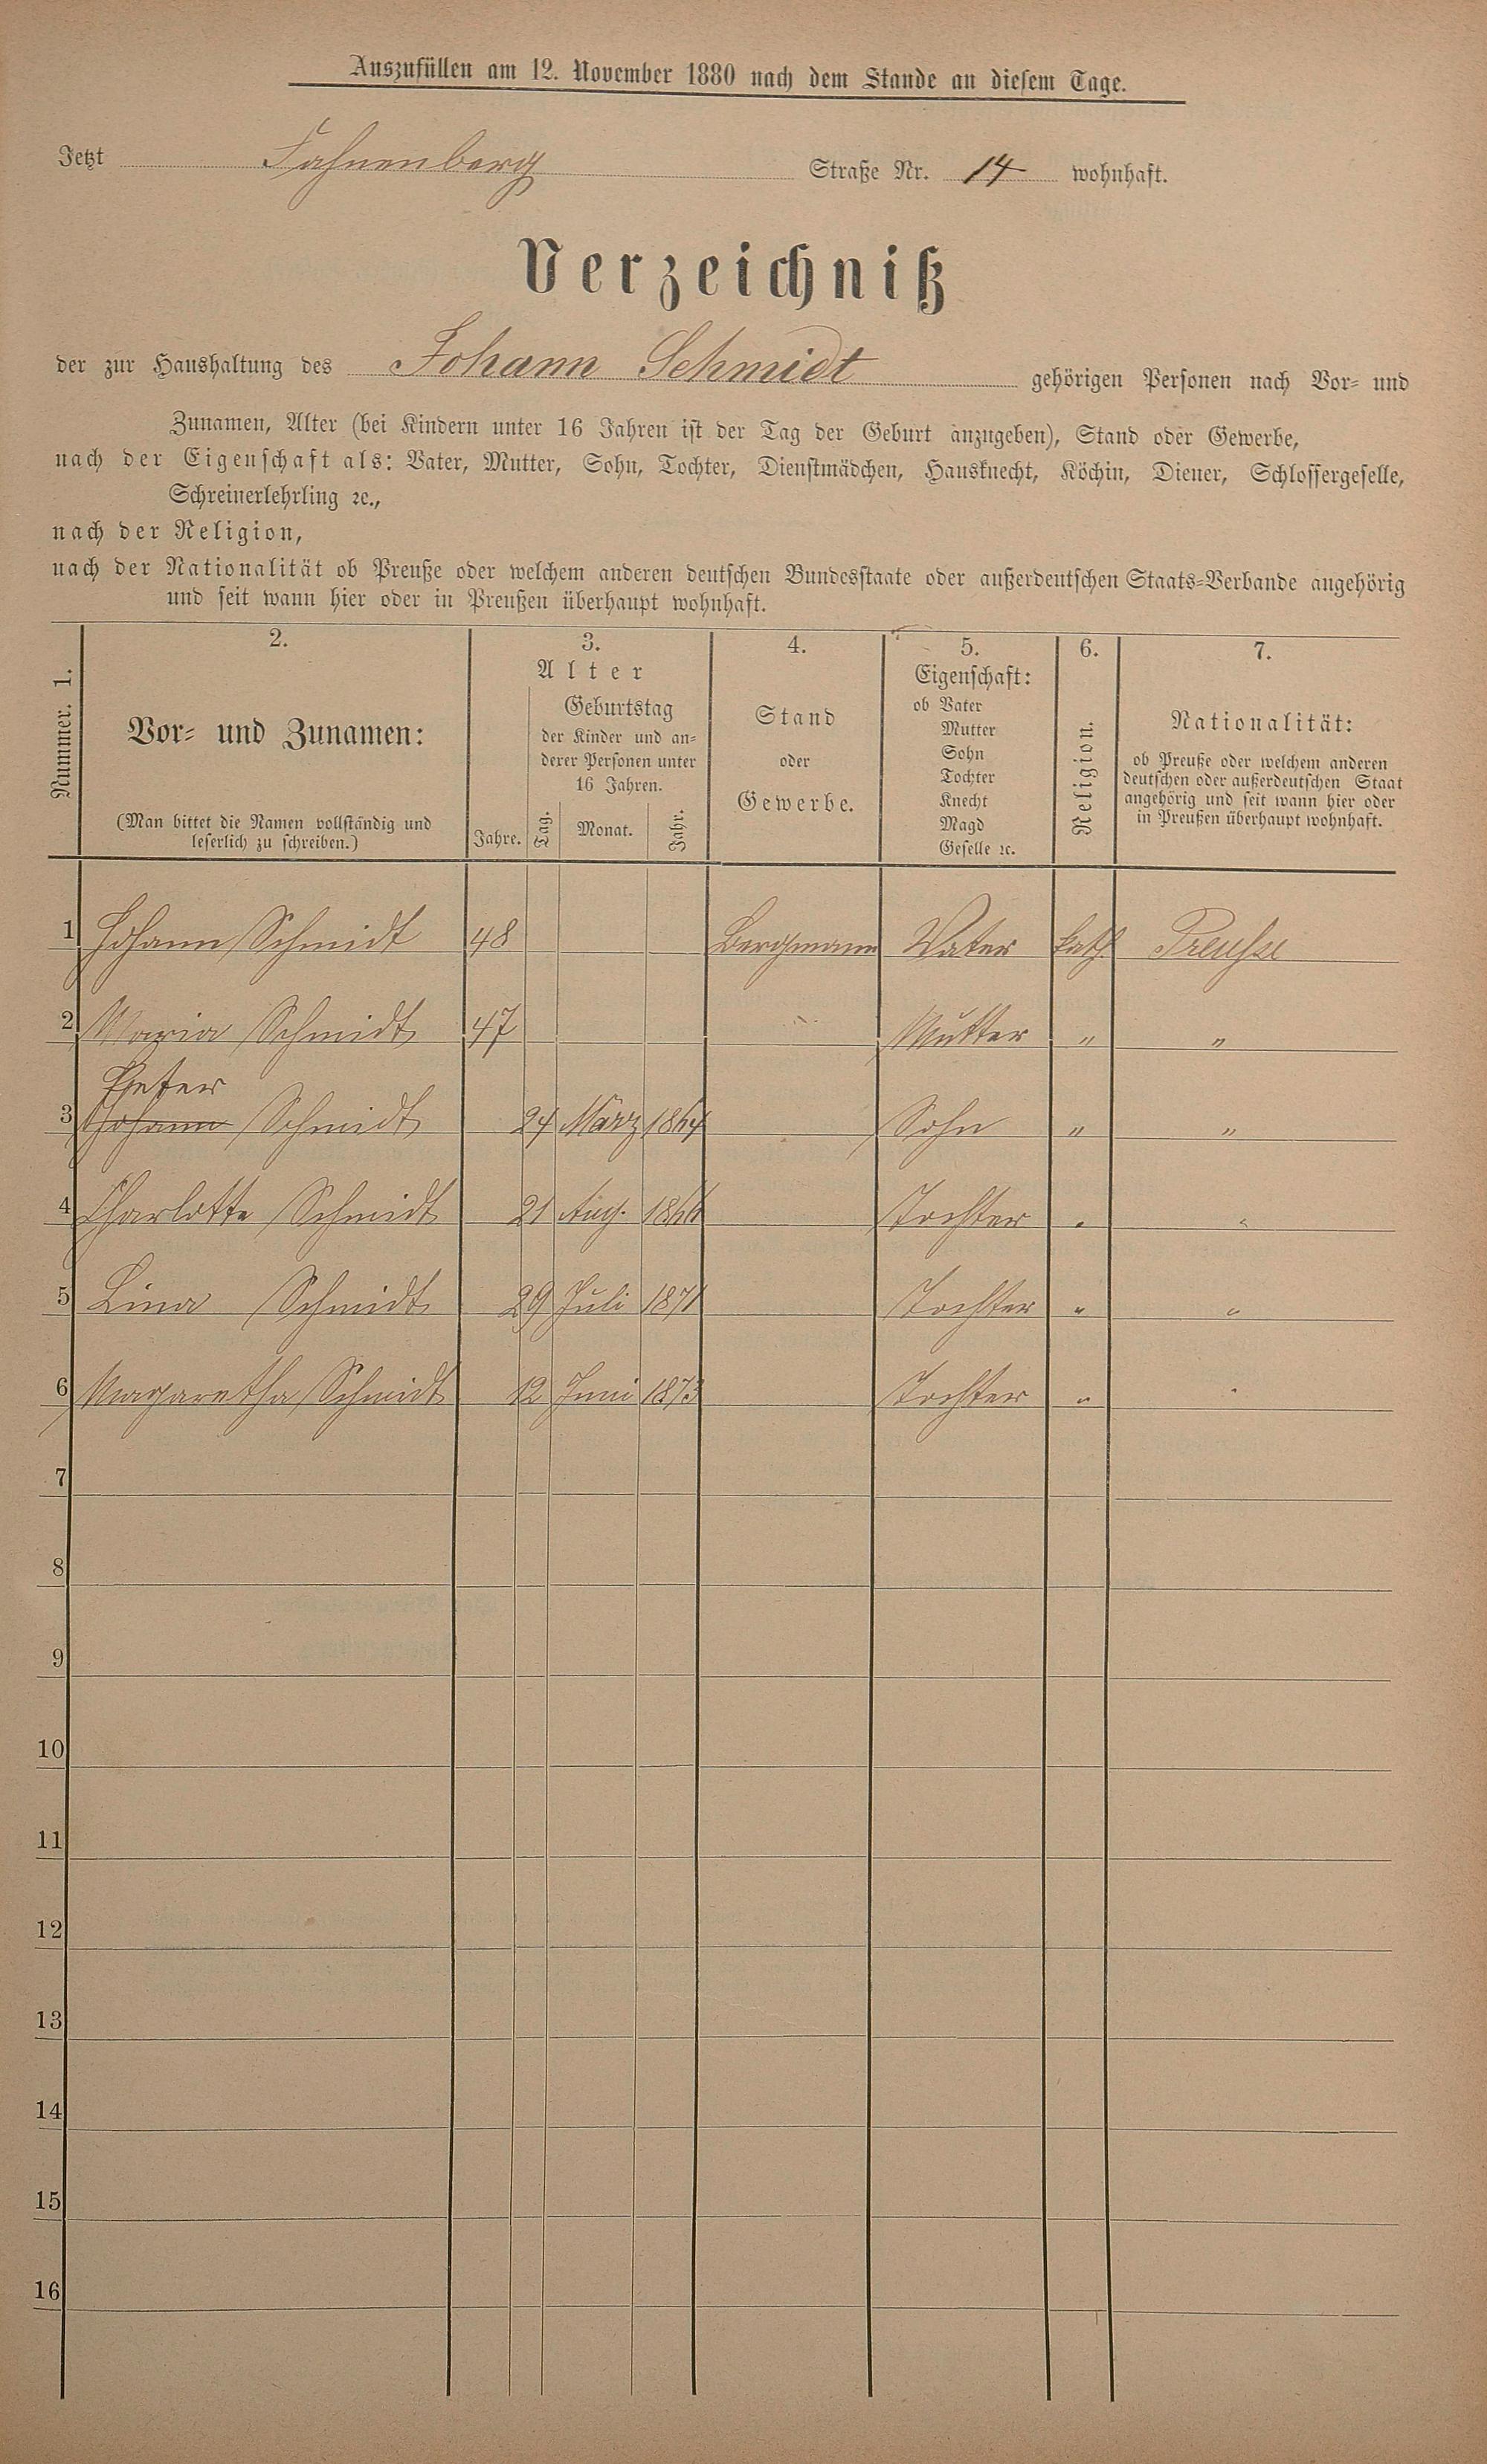 Auszufüllen am 12. November 1880 nach dem Stande an diesem Tage.
Jetzt Fahnenberg Straße Nr. 14 wohnhaft.
Verzeichniß
der zur Haushaltung des Johann Schmidt gehörigen Personen nach Vor- und
Zunamen, Alter (bei Kindern unter 16 Jahren ist der Tag der Geburt anzugeben), Stand oder Gewerbe,
nach der Eigenschaft als: Vater, Mutter, Sohn, Tochter, Dienstmädchen, Hausknecht, Köchin, Diener, Schlossergeselle,
Schreinerlehrling ꝛc.,
nach der Religion,
nach der Nationalität ob Preuße oder welchem anderen deutschen Bundesstaate oder außerdeutschen Staats-Verbande angehörig
und seit wann hier oder in Preußen überhaupt wohnhaft.
Nummer. 1.
2.
Vor- und Zunamen:
(Man bittet die Namen vollständig und
leserlich zu schreiben.)
3.
Alter
Jahre.
Geburtstag
der Kinder und an-
derer Personen unter
16 Jahren.
Tag. Monat. Jahr.
4.
Stand
oder
Gewerbe.
5.
Eigenschaft:
ob Vater
Mutter
Sohn
Tochter
Knecht
Magd
Geselle ꝛc.
6.
Religion.
7.
Nationalität:
ob Preuße oder welchem anderen
deutschen oder außerdeutschen Staat
angehörig und seit wann hier oder
in Preußen überhaupt wohnhaft.
1 Johann Schmidt 48 Bergmann Vater kath. Preuße
2 Maria Schmidt 47 Mutter " "
Peter
3 Johann Schmidt 24 März 1864 Sohn " "
4 Charlotte Schmidt 21 Aug. 1866 Tochter " "
5 Lina Schmidt 29 Juli 1871 Tochter " "
6 Margaretha Schmidt 12 Juni 1873 Tochter " "
7
8
9
10
11
12
13
14
15
16